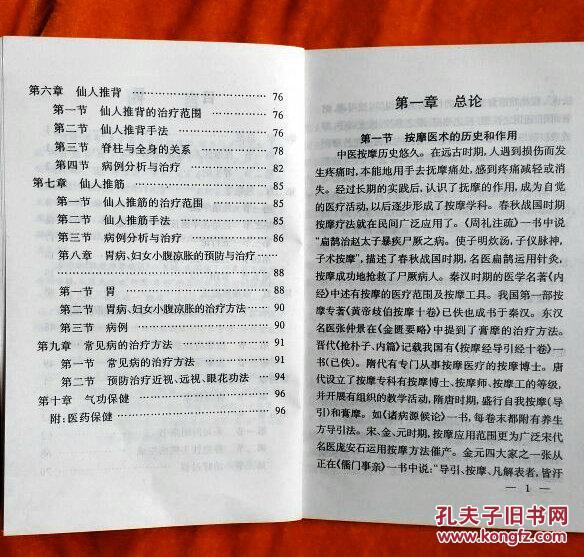 第六章 仙人推背 …………………… 76
第一节 仙人推背的治疗范围 …………… 76
第二节 仙人推背手法 …………………… 76
第三节 脊柱与全身的关系 ……………… 78
第四节 病例分析与治疗 ………………… 82
第七章 仙人推筋 …………………… 85
第一节 仙人推筋的治疗范围 …………… 85
第二节 仙人推筋手法 …………………… 85
第三节 病例分析与治疗 ………………… 86
第八章 胃病、妇女小腹凉胀的预防与治疗 ……
…………………… 88
第一节 胃 ………………………… 88
第二节 胃病、妇女小腹凉胀的治疗方法 … 90
第三节 病例 ……………………… 90
第九章 常见病的治疗方法 …………… 91
第一节 常见病的治疗方法 ……………… 91
第二节 预防治疗近视、远视、眼花功法 …… 94
第十章 气功保健 …………………… 96
附:医药保健 ………………………… 96
第一章 总论
第一节 按摩医术的历史和作用
中医按摩历史悠久。在远古时期,人遇到损伤而发
生疼痛时,本能地用手去抚摩痛处,感到疼痛减轻或消
失。经过长期的实践后,认识了抚摩的作用,成为自觉
的医疗活动,以后逐步形成了按摩学科。春秋战国时期
按摩疗法就在民间广泛应用了。《周礼注疏》一书中说
“扁鹊治赵太子暴疾尸厥之病。使子明炊汤,子仪脉神,
子术按摩”,描述了春秋战国时期,名医扁鹊运用针灸、
按摩成功地抢救了尸厥病人。秦汉时期的医学名著《内
经》中述有按摩的医疗范围及按摩工具。我国第一部按
摩专著《黄帝歧伯按摩十卷》已佚也成书于秦汉。东汉
名医张仲景在《金匮要略》中提到了膏摩的治疗方法。
晋代《抢朴子、内篇》记载我国有《按摩经导引经十卷》一
书(已佚)。隋代有专门从事按摩医疗的按摩博士。唐
代设立了按摩专科有按摩博士、按摩师、按摩工的等级,
并开展有组织的教学活动,隋唐时期,盛行自我按摩(导
引)和膏摩。如《诸病源候论》一书,每卷末都附有养生
方导引法。宋、金、元时期,按摩应用范围更为广泛宋代
名医庞安石运用按摩方法催产。金元四大家之一张从
正在《儒门事亲》一书中说:“导引、按摩、凡解表者,皆汗
— 1 —
孔夫子旧书网